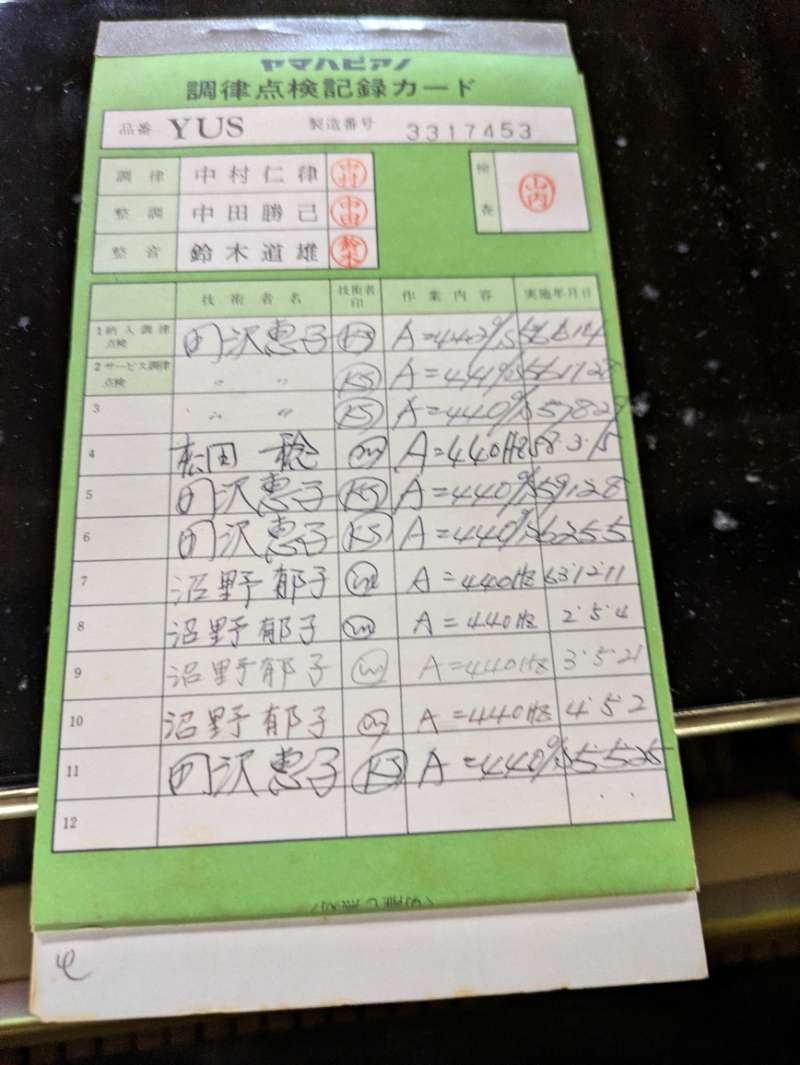 ヤマハピアノ
調律点検記録カード
品番 YUS 製造番号 3317453
調律 中村仁律 中村 検査 山内
整調 中田勝己 中田
整音 鈴木道雄 鈴木
技術者名 技術者印 作業内容 実施年月日
1 納入調律点検 沢恵子 KS A=442%
2 サービス調律点検 〃 〃 KS A=441%
3 〃 〃 KS A=440% 57829
4 松田 稔 m A=440Hz 58・3・15
5 沢恵子 KS A=440% 59128
6 沢恵子 KS A=440% 6255
7 沼野郁子 A=440Hz 63・12・11
8 沼野郁子 A=440Hz 2・5・4
9 沼野郁子 A=440Hz 3・5・21
10 沼野郁子 A=440Hz 4・5・2
11 沢恵子 KS A=440% 5525
12